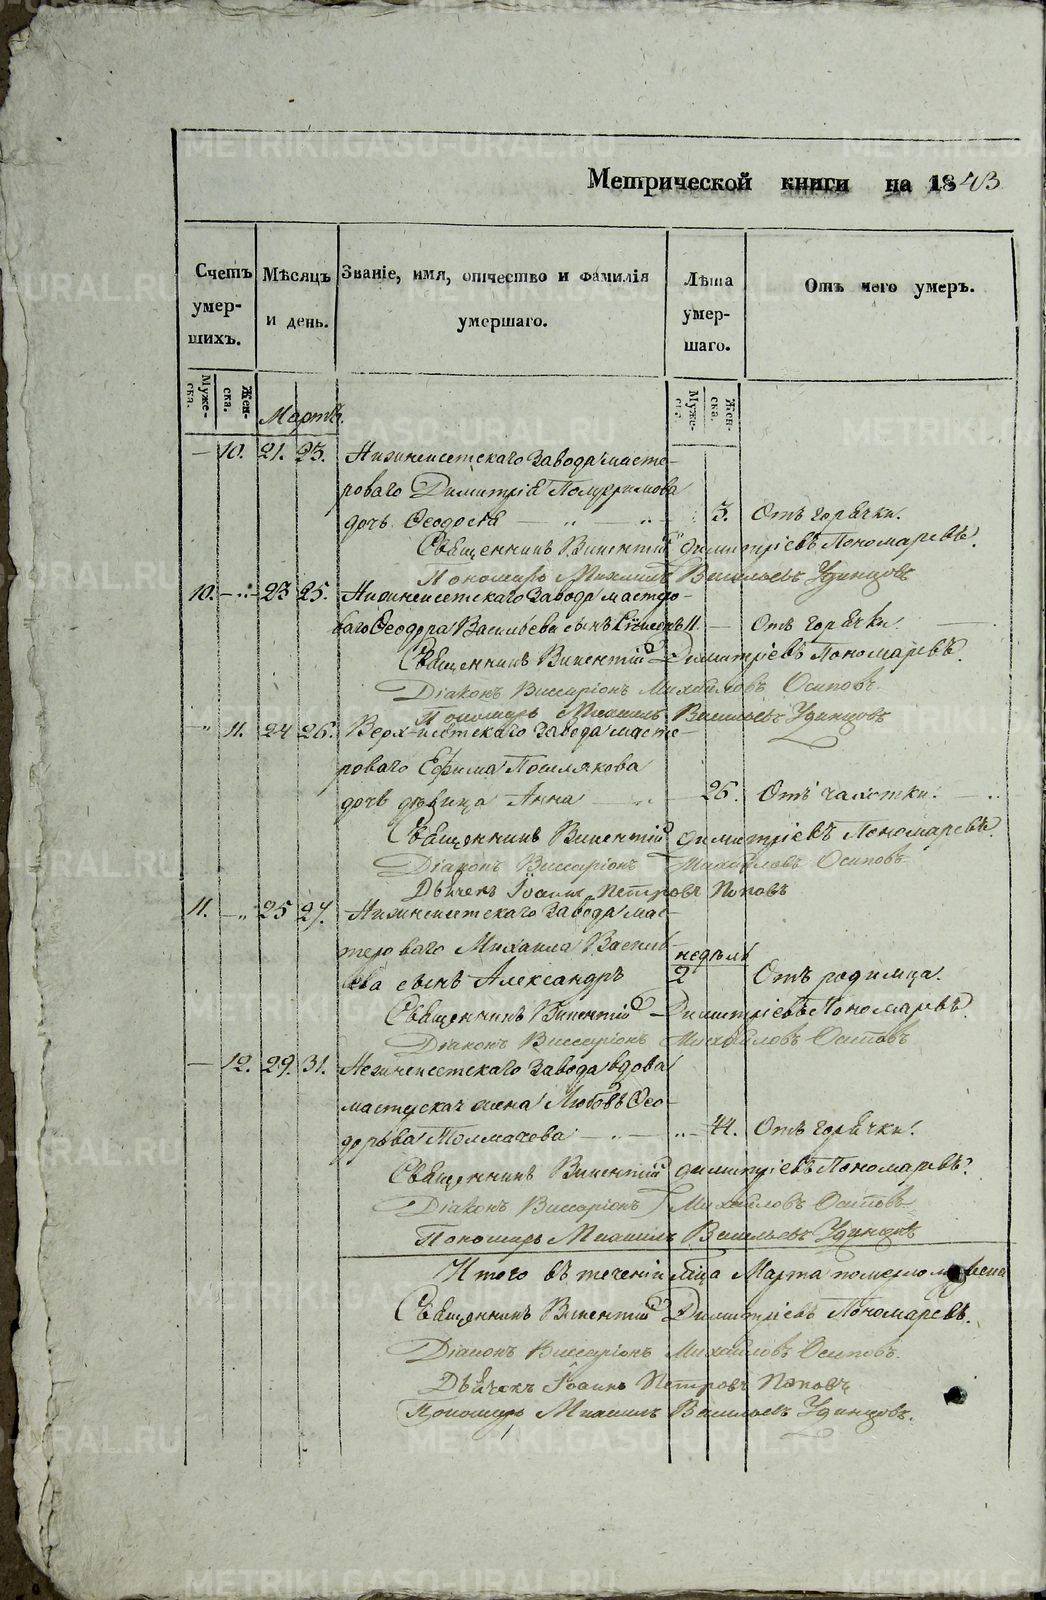 Метрической книги на 1843
Счетъ умер-шихъ.
Мѣсяцъ и день.
Званіе, имя, отчество и фамилія умершаго.
Лѣта умер-шаго.
Отъ чего умеръ.
Муже-ска.
Жен-ска.
Муже-ска.
Жен-ска.
Мартъ.
— 10. 21. 23. Нижнеисетскаго Завода масте-
роваго Димитрія
дочь Ѳеодосья 3. Отъ горячки.
Священникъ Викентій Димитріевъ Пономаревъ.
Пономарь Михаилъ Васильевъ Удинцовъ
10. — 23 25. Нижнеисетскаго Завода мастеро-
ваго Ѳеодора Васильева сынъ 11. — Отъ горячки.
Священникъ Викентій Димитріевъ Пономаревъ.
Діаконъ Виссаріонъ Михайловъ Осиповъ.
Пономарь Михаилъ Васильевъ Удинцовъ
11. 24 26. Верх-исетскаго Завода масте-
роваго Ефима Посмлякова
дочь дѣвица Анна 26. Отъ чахотки.
Священникъ Викентій Димитріевъ Пономаревъ.
Діаконъ Виссаріонъ Михайловъ Осиповъ
Дьячекъ Іоаннъ Петровъ Поповъ
11. — 25 27. Нижнеисетскаго Завода мас-
тероваго Михаила Василь- недѣль
ева сынъ Александръ 2 Отъ родимца.
Священникъ Викентій Димитріевъ Пономаревъ.
Діаконъ Виссаріонъ Михайловъ Осиповъ
— 12. 29. 31. Нижнеисетскаго Завода вдова
мастерская жена Любовь Ѳео-
дорова Толмачова 44. Отъ горячки.
Священникъ Викентій Димитріевъ Пономаревъ.
Діаконъ Виссаріонъ Михайловъ Осиповъ
Пономарь Михаилъ Васильевъ Удинцовъ
Итого въ теченіи м̃ца Марта померло
Священникъ Викентій Димитріевъ Пономаревъ.
Діаконъ Виссаріонъ Михайловъ Осиповъ.
Дьячекъ Іоаннъ Петровъ Поповъ
Пономарь Михаилъ Васильевъ Удинцовъ.
METRIKI.GASO-URAL.RU